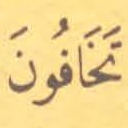 تَخَافُونَ